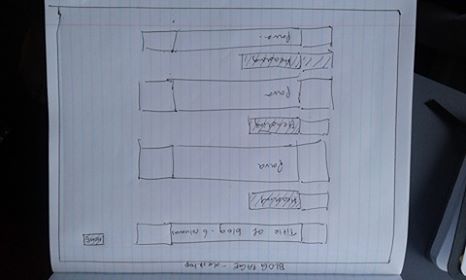 BLOG PAGE - desktop
Title of blog - 6 columns
Heading
Para
Heading
Para
Heading
Para.